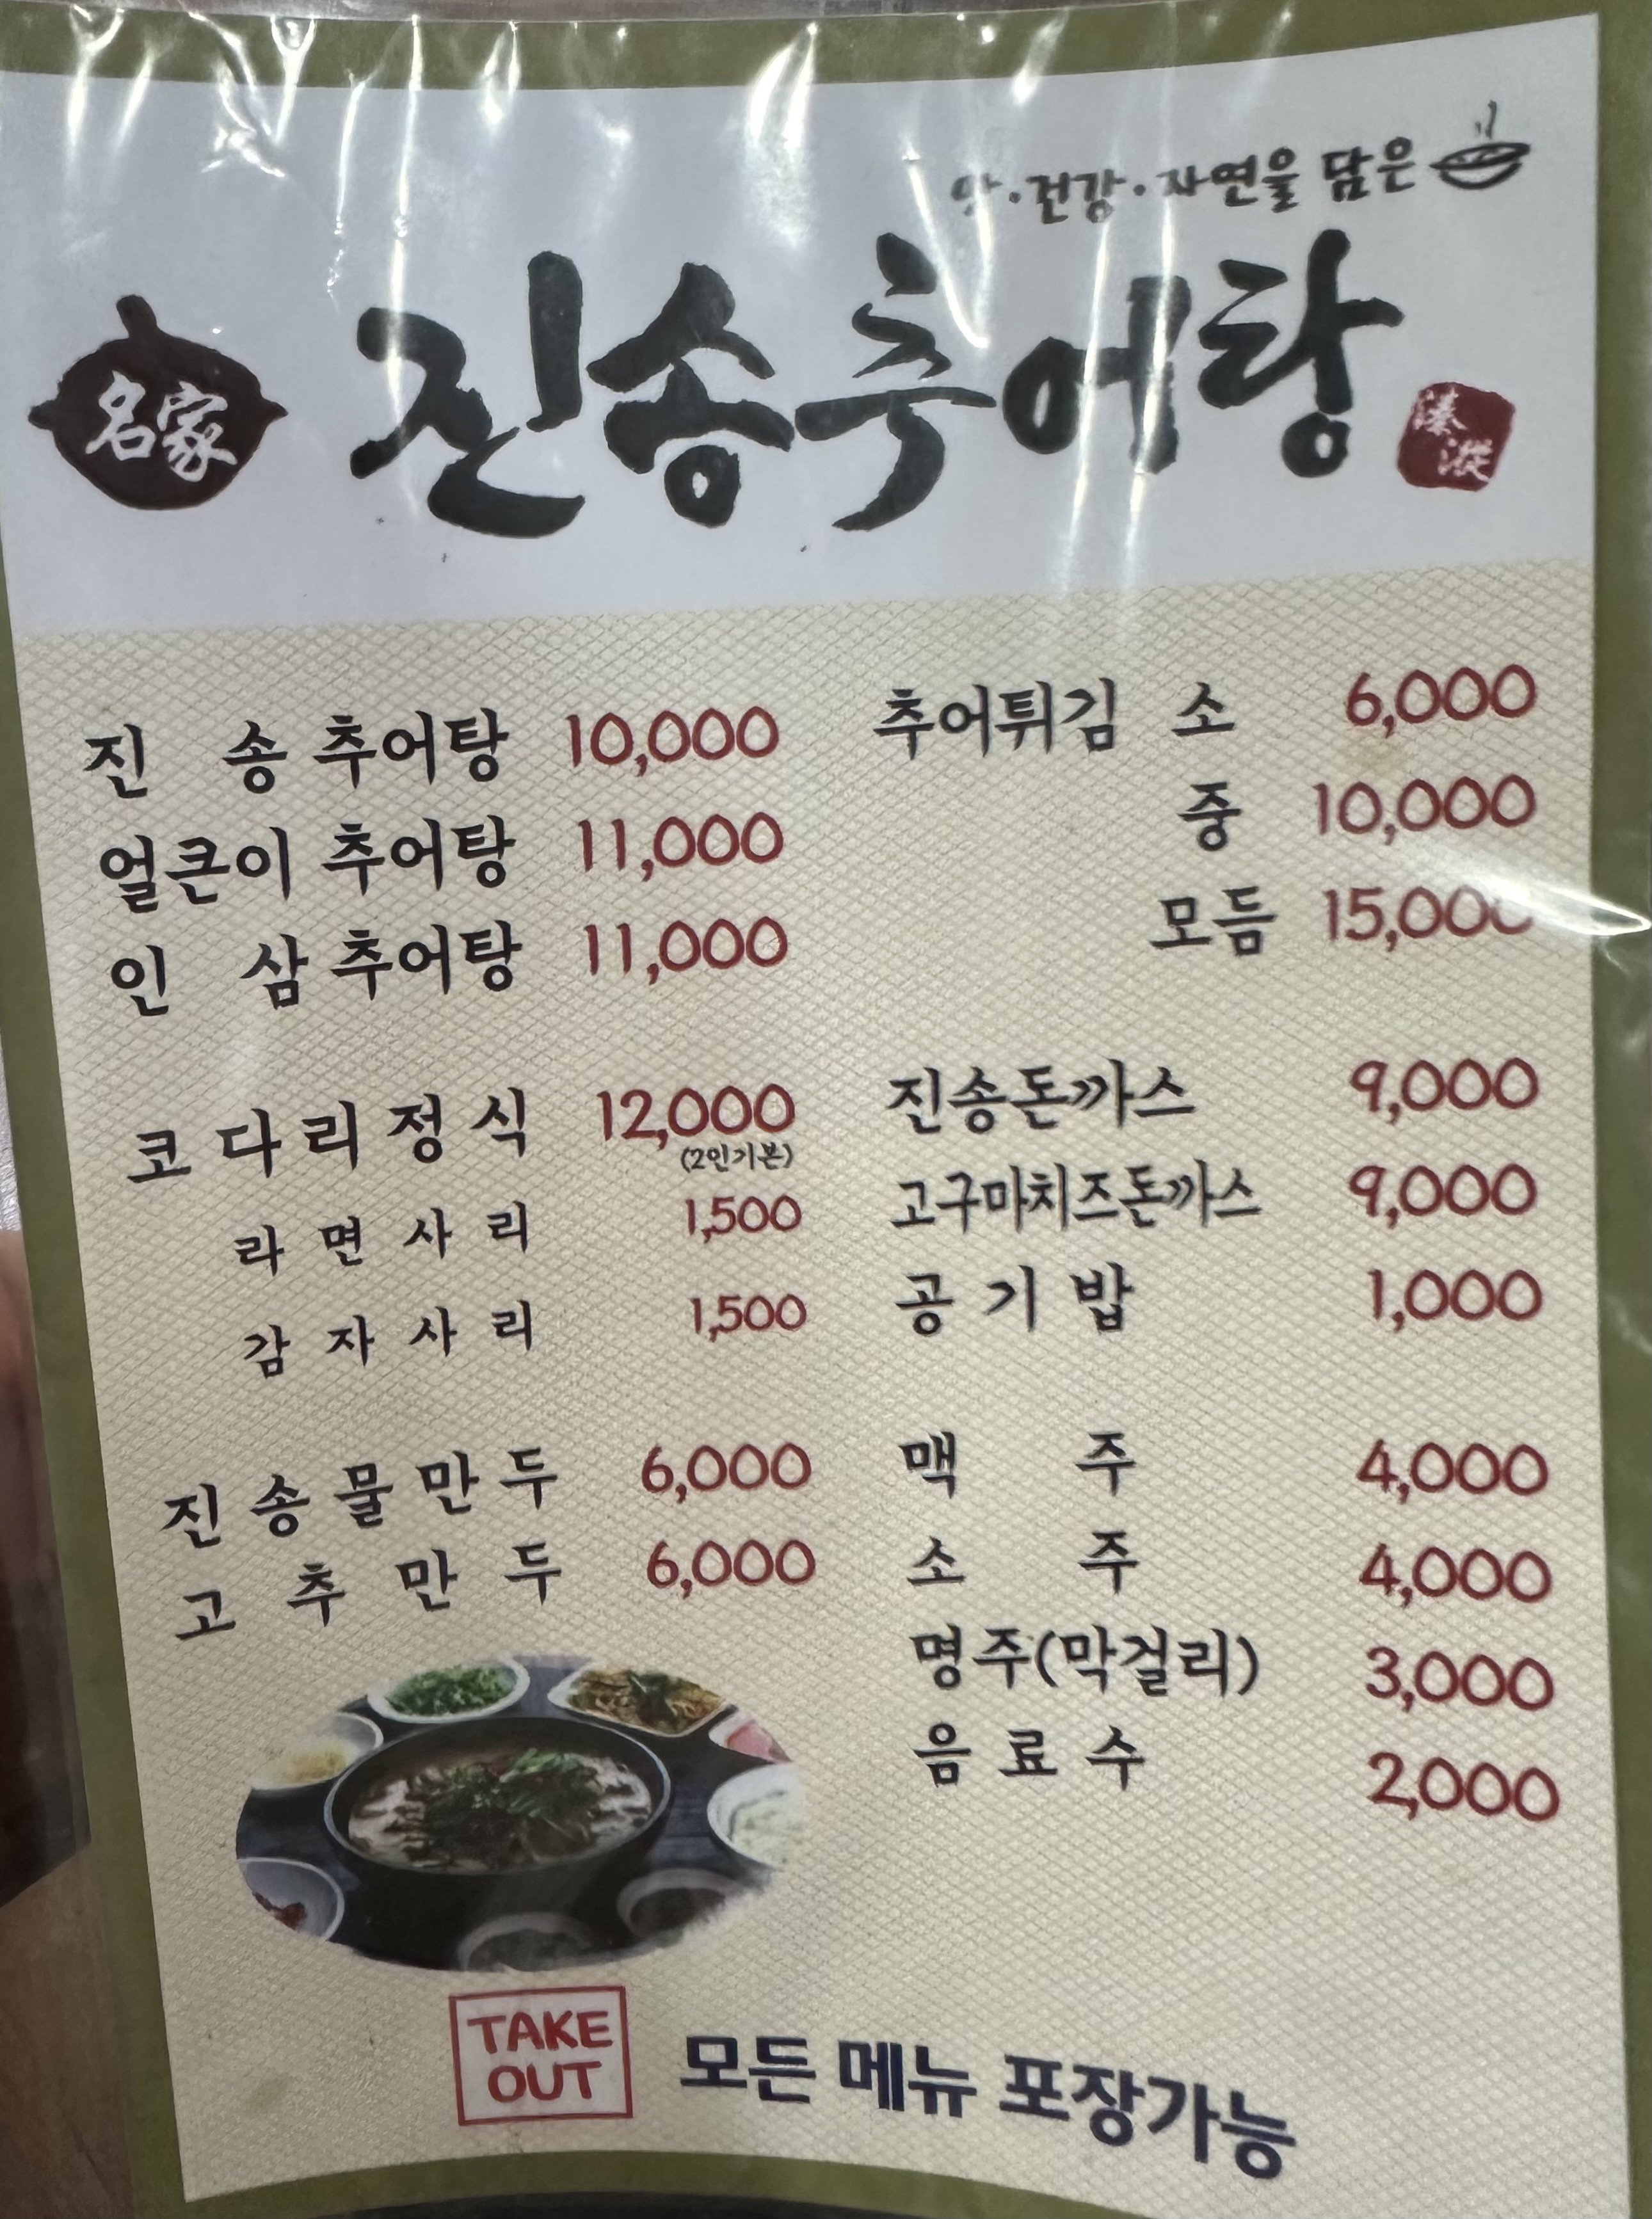 맛·건강·자연을 담은
名家
진송추어탕
진 송 추어탕 10,000
얼큰이 추어탕 11,000
인 삼 추어탕 11,000
코다리정식 12,000
(2인기본)
라면사리 1,500
감자사리 1,500
진송물만두 6,000
고추만두 6,000
추어튀김 소 6,000
중 10,000
모듬 15,000
진송돈까스 9,000
고구마치즈돈까스 9,000
공기밥 1,000
맥주 4,000
소주 4,000
명주(막걸리) 3,000
음료수 2,000
TAKE
OUT
모든 메뉴 포장가능